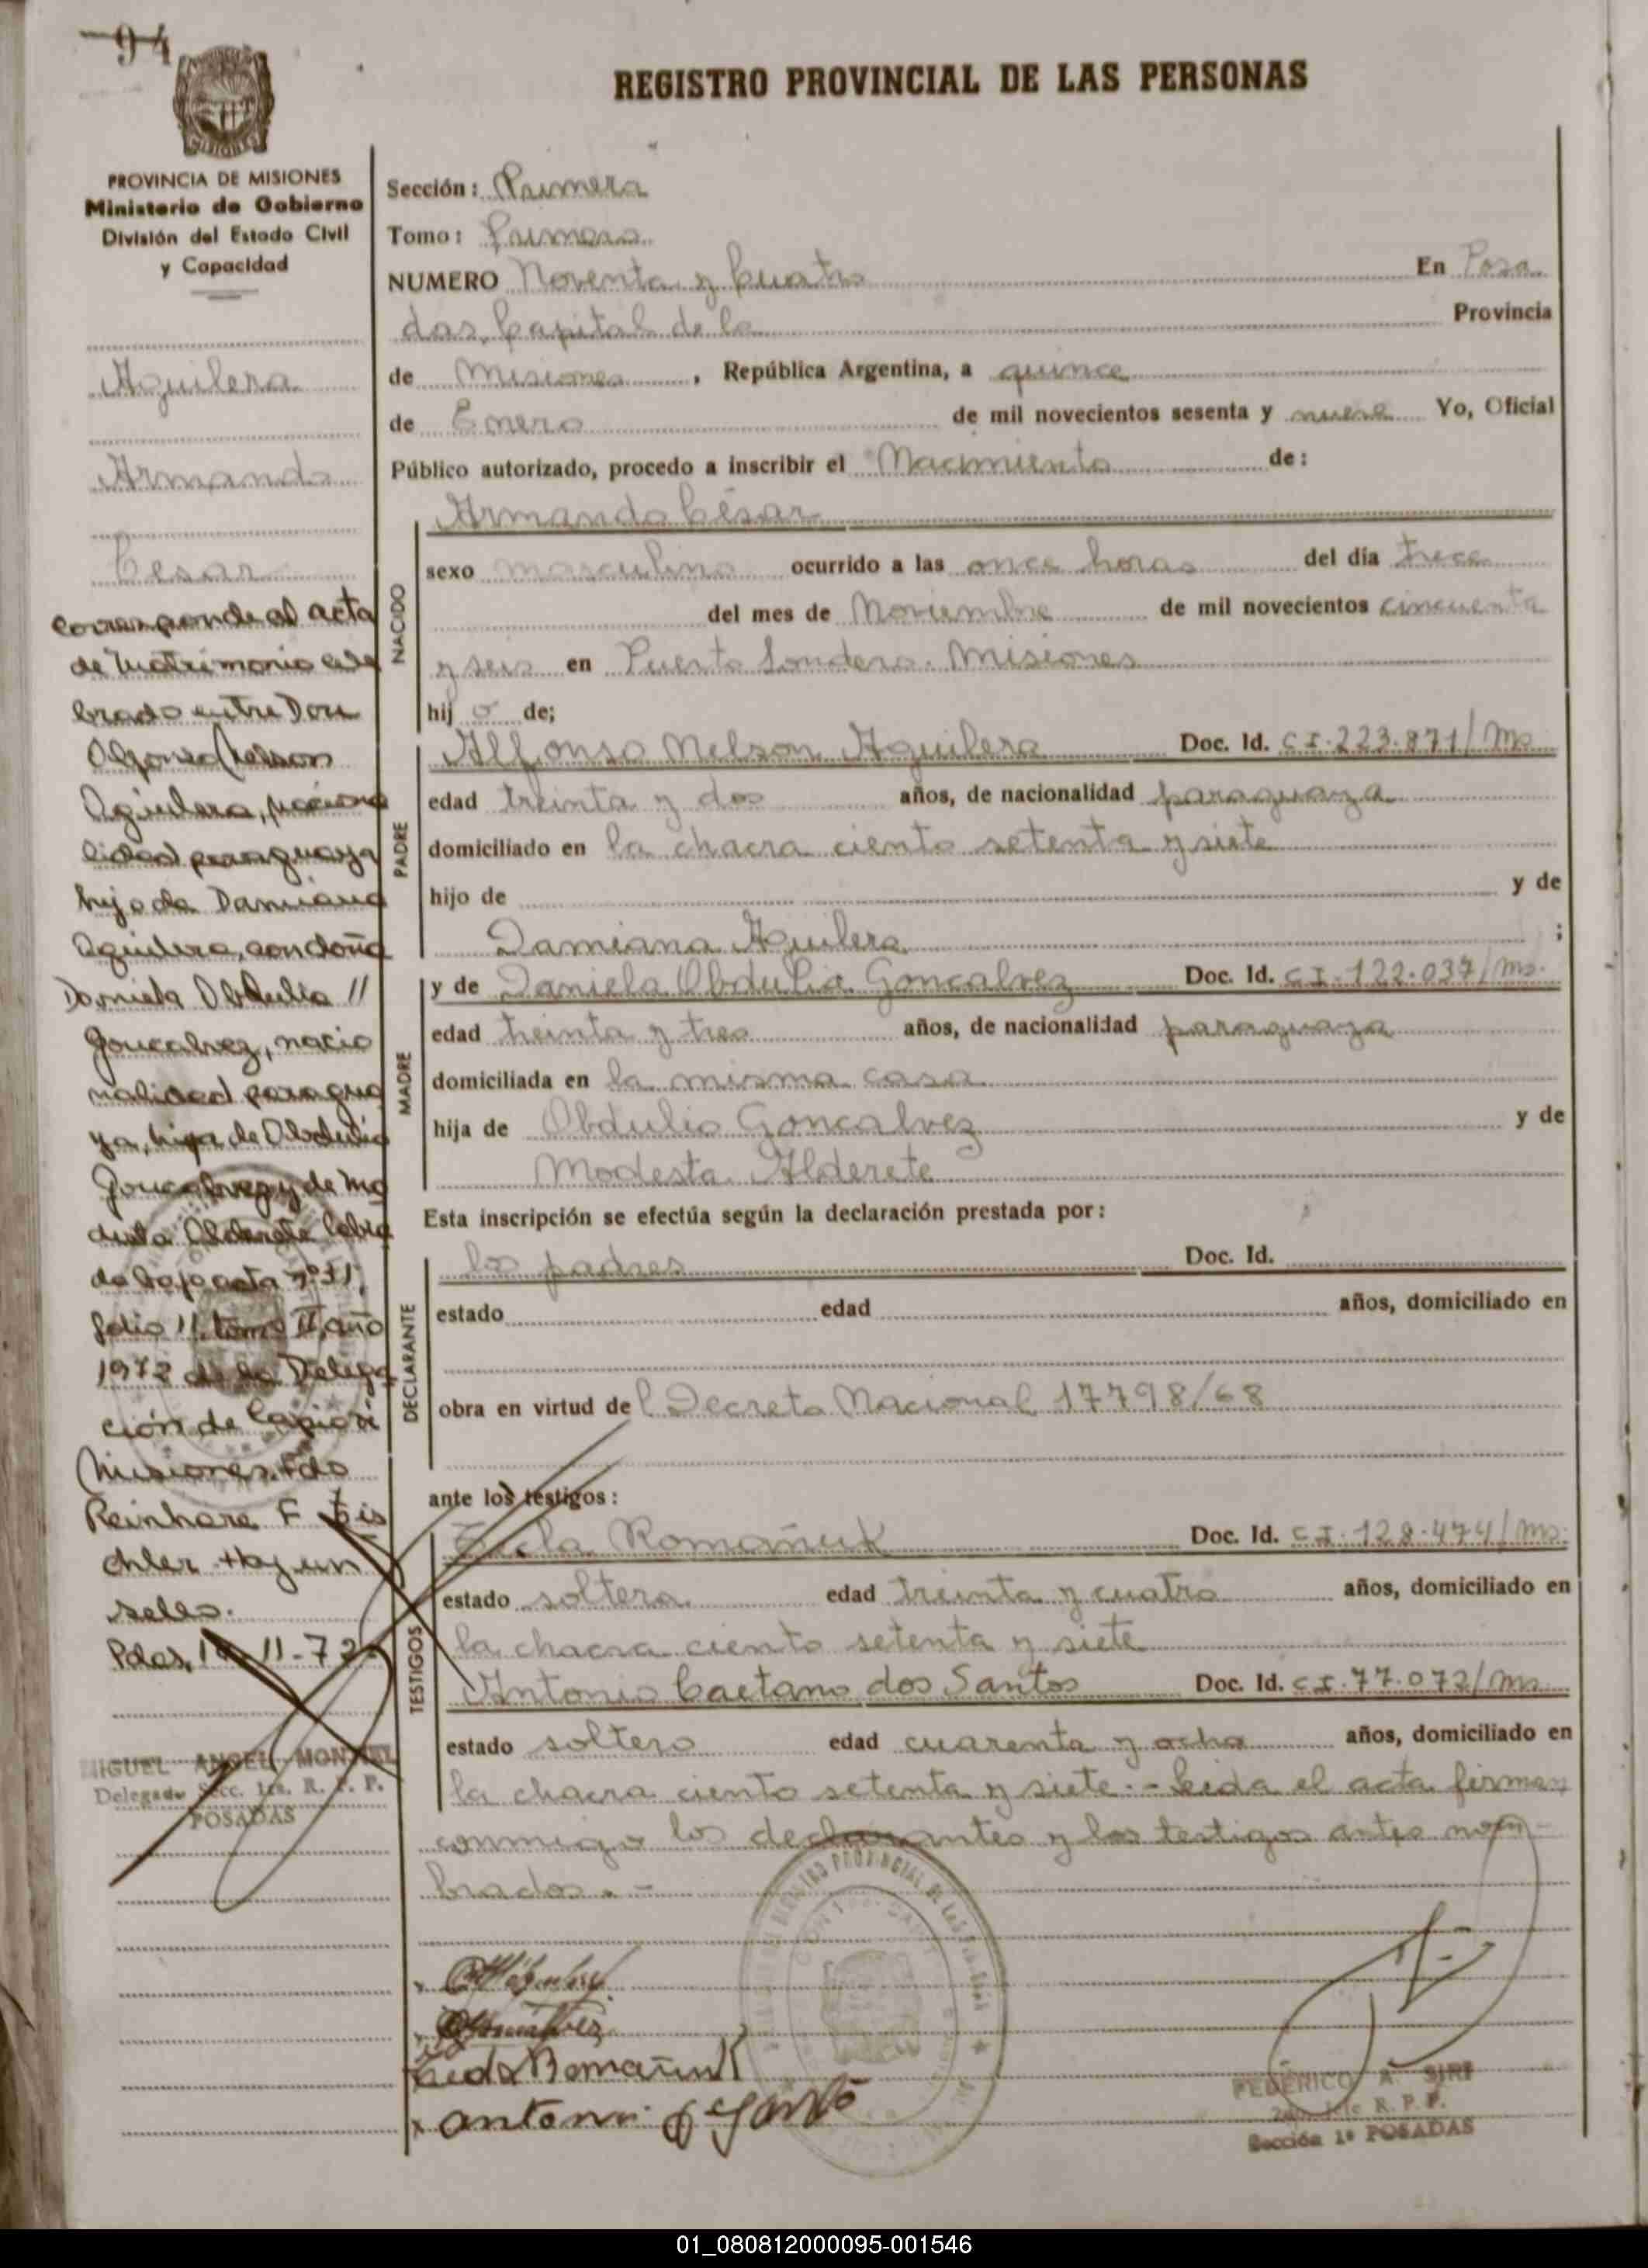 94
REGISTRO PROVINCIAL DE LAS PERSONAS
PROVINCIA DE MISIONES
Ministerio de Gobierno
División del Estado Civil
y Capacidad
Aguilera
Armando
Cesar
corresponde al acta
de matrimonio cele
brado entre Don
Alfonso Nelson
Aguilera, naciona
lidad paraguaya
hijo de Damiana
Aguilera, con doña
Daniela Obdulia //
Goncalvez, nacio
nalidad paragua
ya, hija de Obdulio
Goncalvez y de Mo
desta Alderete labra
da bajo acta nº 11,
folio 11, tomo II, año
1972 de la Delega
ción de Capiovi
Misiones. Fdo
Reinhare F
Hay un
sello.
Pdas, 11-72
MIGUEL ANGEL
Delegado Secc. 1ra. R. P. P.
POSADAS
Sección: Primera
Tomo: Primero
NUMERO Noventa y Cuatro En Posa
das, Capital de la Provincia
de Misiones, República Argentina, a quince
de Enero de mil novecientos sesenta y nueve Yo, Oficial
Público autorizado, procedo a inscribir el Nacimiento de:
Armando César
NACIDO
sexo masculino ocurrido a las once horas del día trece
del mes de Noviembre de mil novecientos cincuenta
y seis en Puerto Londero. Misiones
hijo de;
PADRE
Alfonso Nelson Aguilera Doc. Id. C.I. 223.871/Ms
edad treinta y dos años, de nacionalidad paraguaya
domiciliado en la chacra ciento setenta y siete
hijo de y de
Damiana Aguilera ;
MADRE
y de Daniela Obdulia Goncalvez Doc. Id. C.I. 122.037/Ms.
edad treinta y tres años, de nacionalidad paraguaya
domiciliada en la misma casa
hija de Obdulio Goncalvez y de
Modesta Alderete
Esta inscripción se efectúa según la declaración prestada por:
DECLARANTE
los padres Doc. Id.
estado edad años, domiciliado en
obra en virtud del Decreto Nacional 17798/68
ante los testigos:
TESTIGOS
Romañuk Doc. Id. C.I. 128.474/Ms.
estado soltera edad treinta y cuatro años, domiciliado en
la chacra ciento setenta y siete
Antonio Caetano dos Santos Doc. Id. C.I. 77.072/Ms
estado soltero edad cuarenta y ocho años, domiciliado en
la chacra ciento setenta y siete.- Leida el acta firman
conmigo los declarantes y los testigos antes nom-
brados.-
Romañuk
antonio
FEDERICO A. SIRI
R. P. P.
Sección 1ª POSADAS
01_080812000095-001546